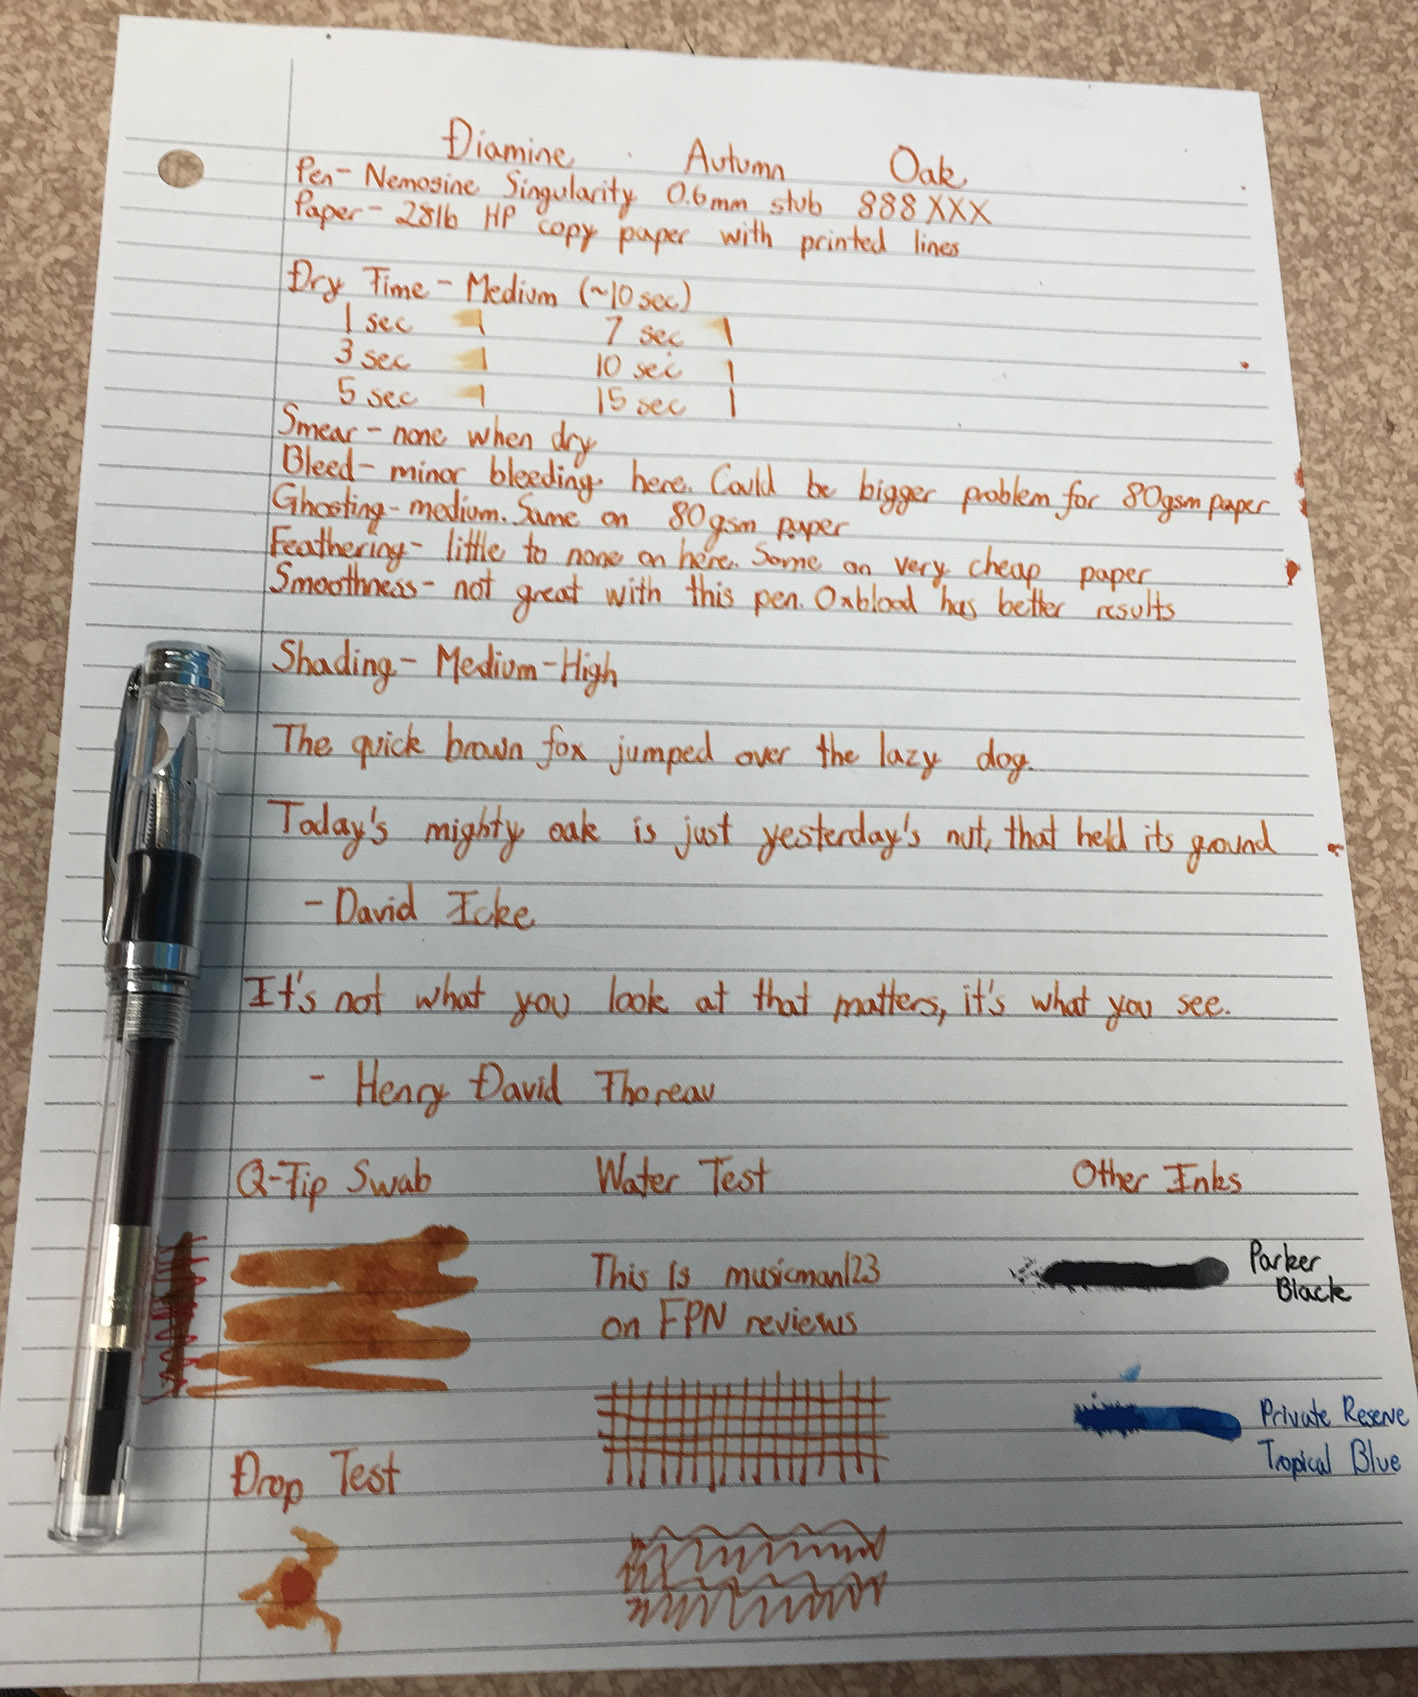 Diamine Autumn Oak
Pen- Nemosine Singularity 0.6mm stub 888 XXX
Paper- 28lb HP copy paper with printed lines
Dry Time - Medium (~10 sec)
1 sec 7 sec
3 sec 10 sec
5 sec 15 sec
Smear - none when dry
Bleed - minor bleeding here. Could be bigger problem for 80gsm paper
Ghosting - medium. Same on 80gsm paper
Feathering - little to none on here. Some on very cheap paper
Smoothness - not great with this pen. Oxblood has better results
Shading - Medium-High
The quick brown fox jumped over the lazy dog.
Today's mighty oak is just yesterday's nut, that held its ground
- David Icke
It's not what you look at that matters, it's what you see.
- Henry David Thoreau
Q-Tip Swab Water Test Other Inks
This is musicman123
on FPN reviews
Parker
Black
Private Reserve
Tropical Blue
Drop Test